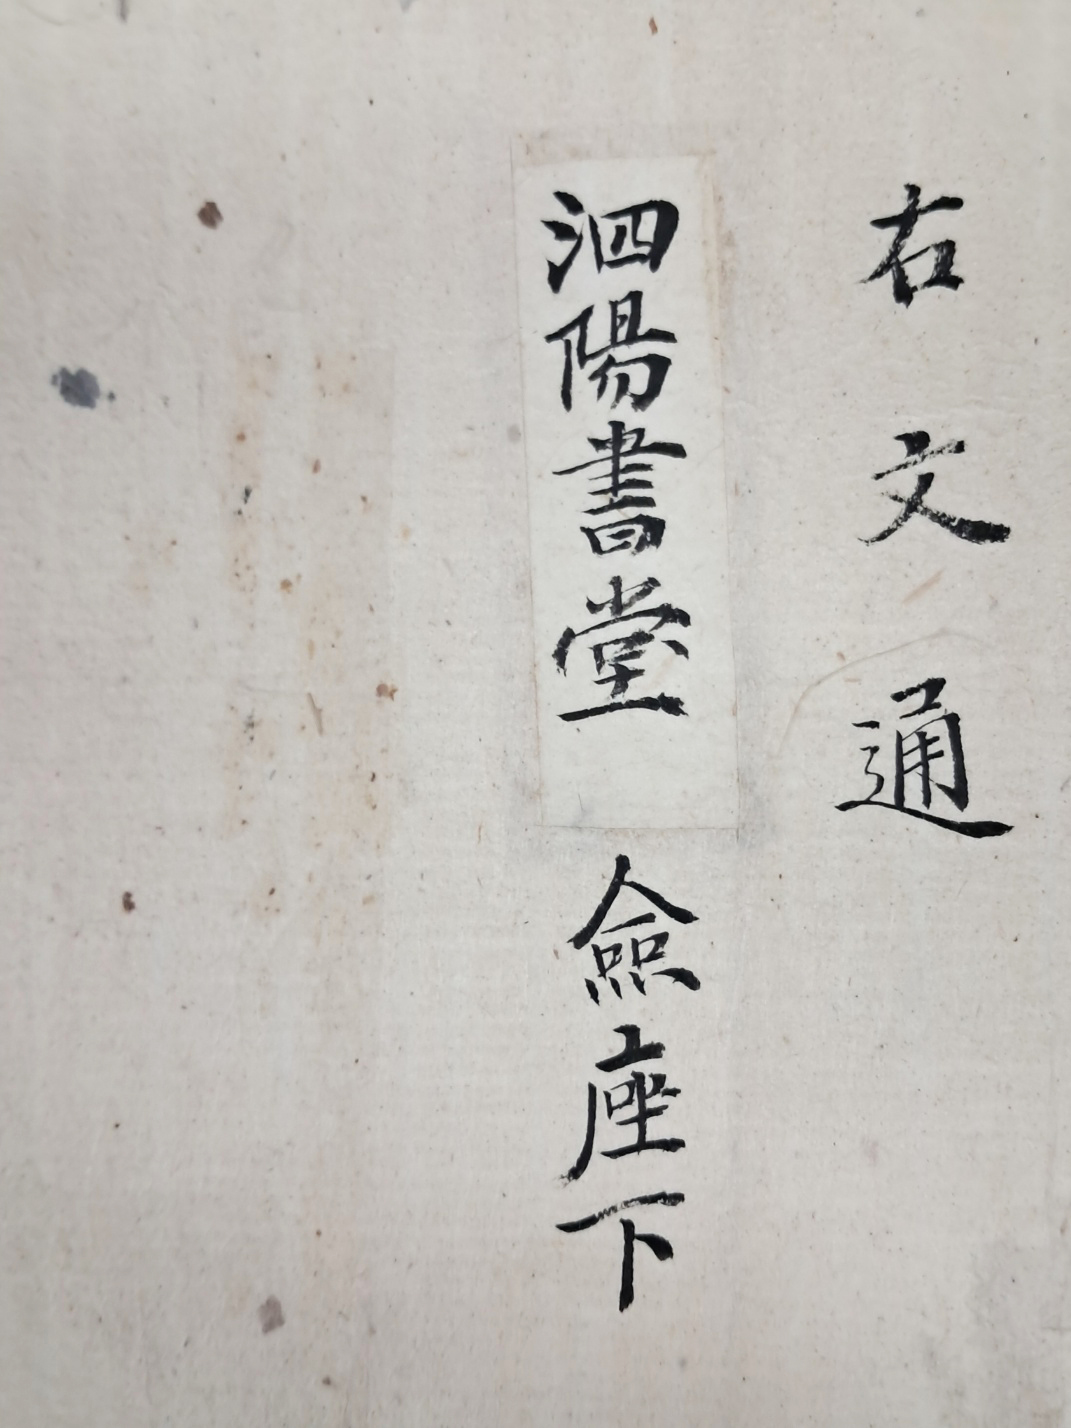 右文通
泗陽書堂 僉座下